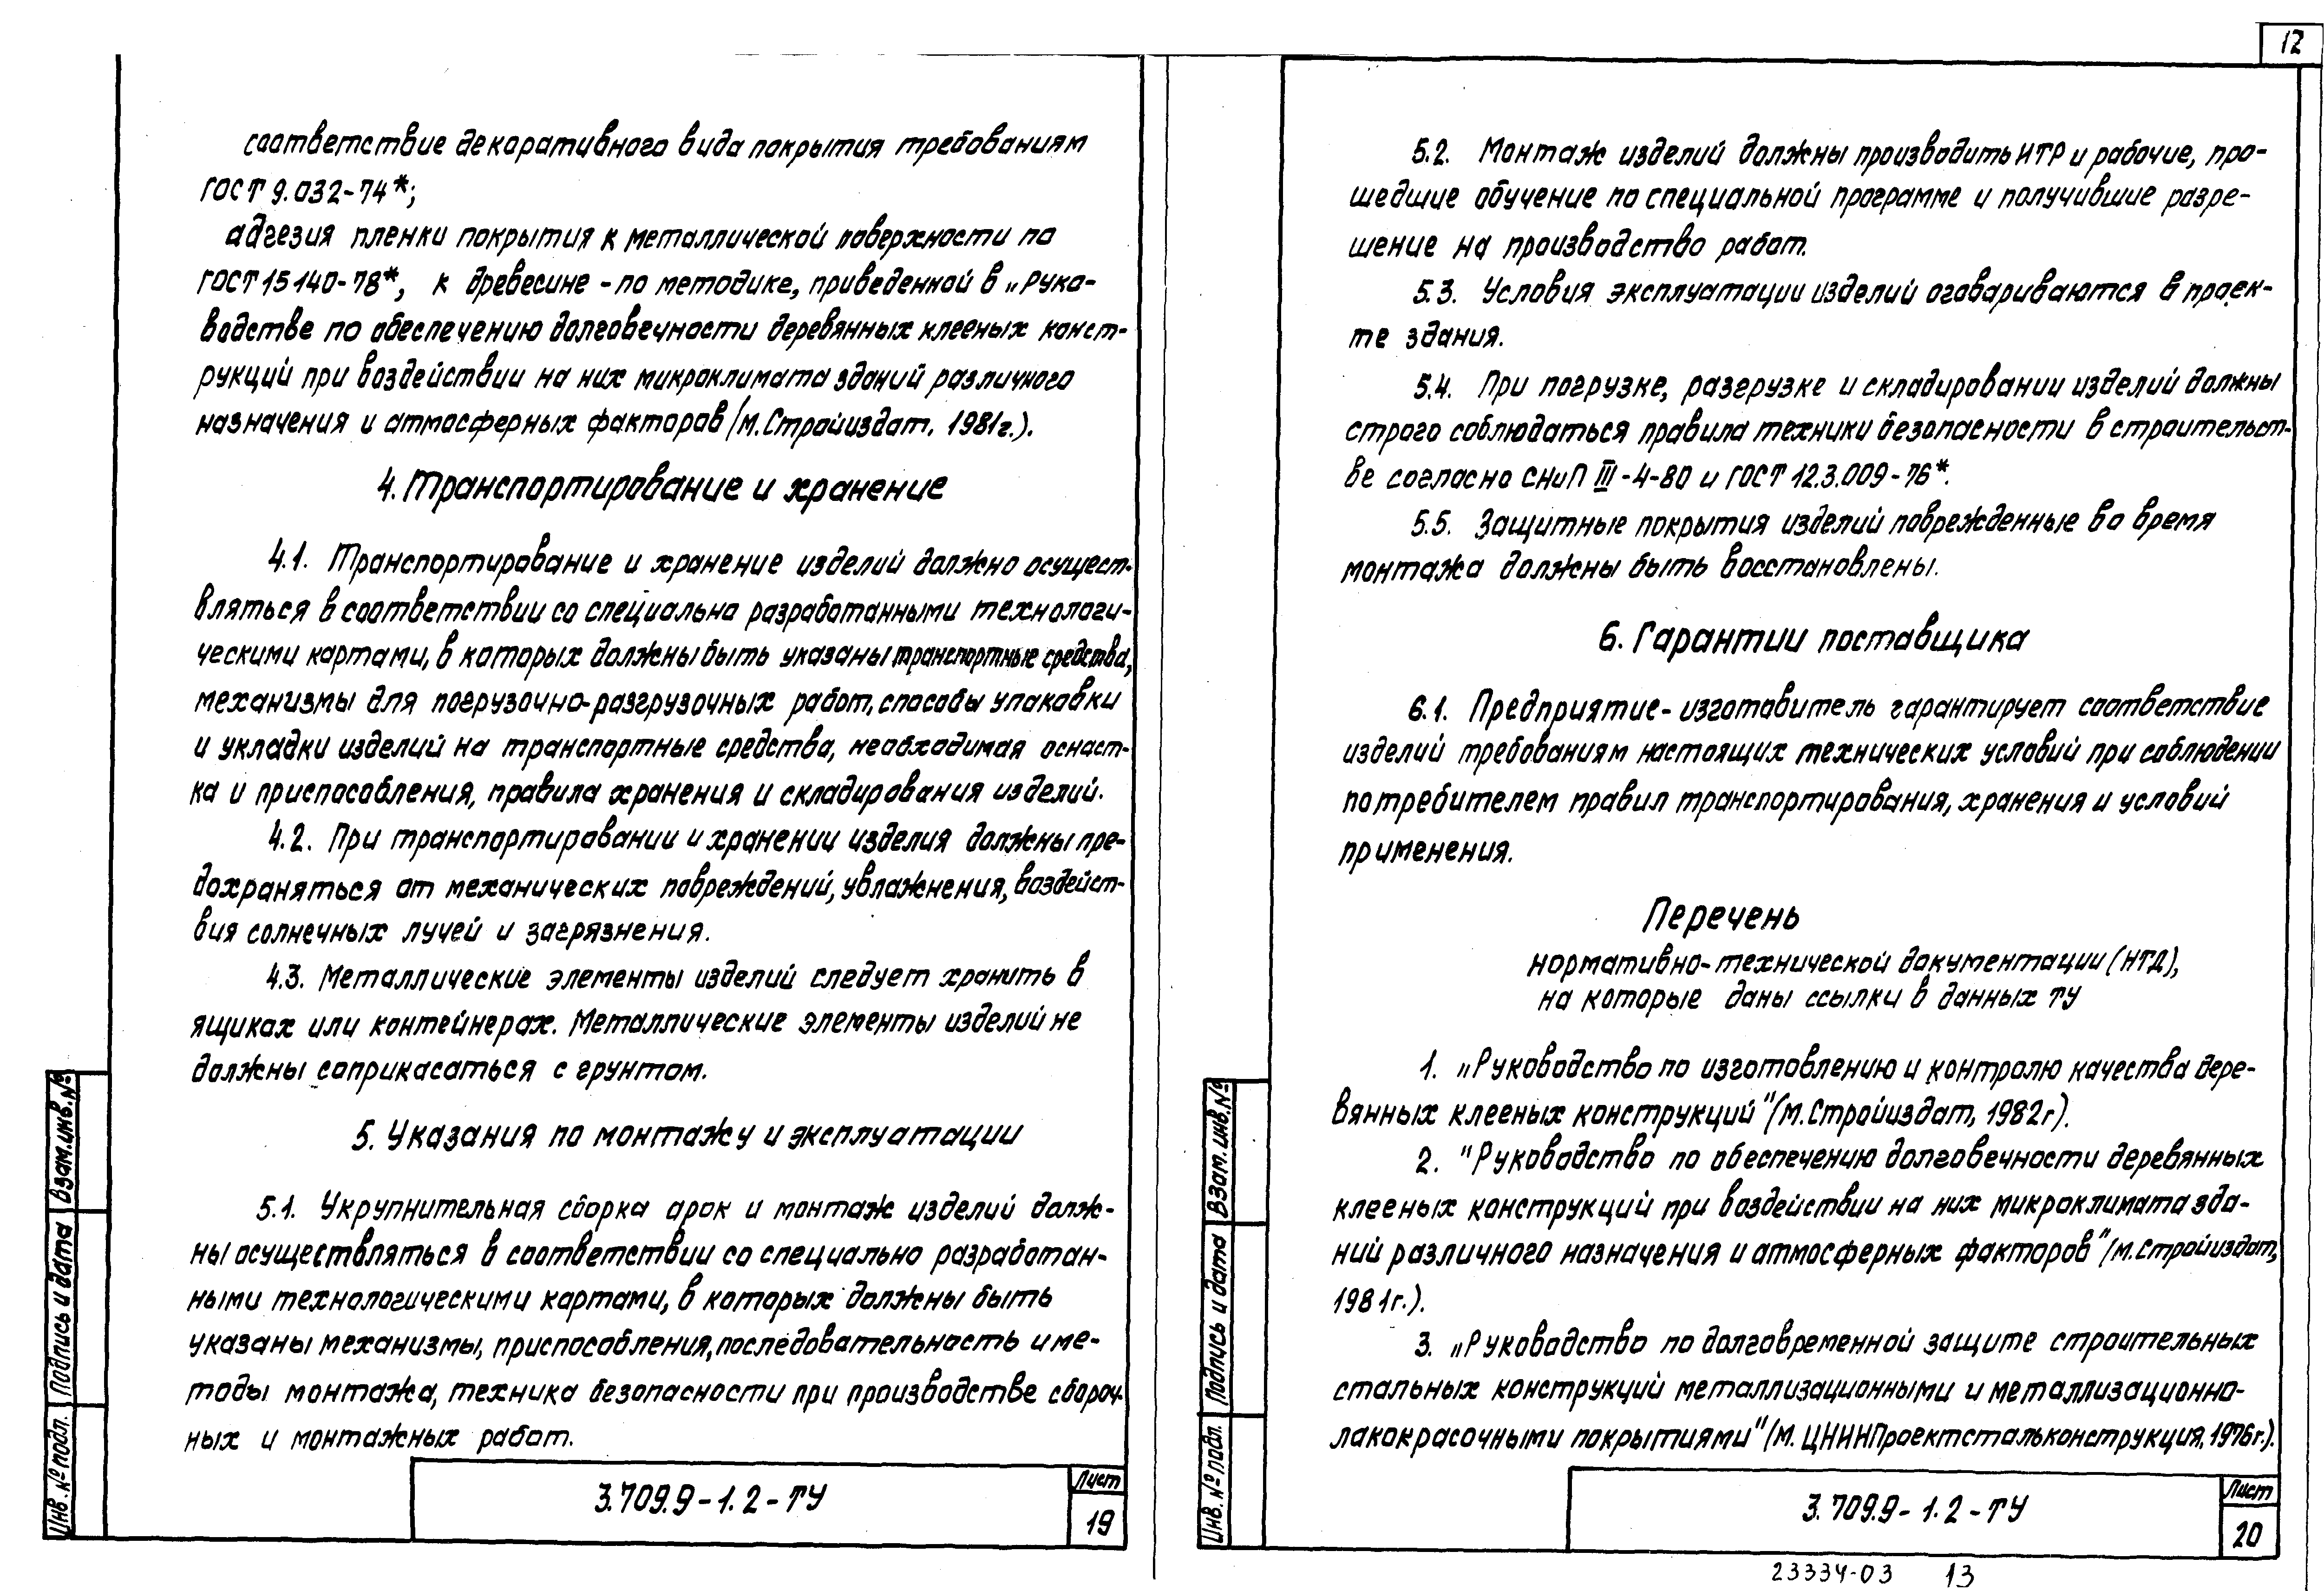 соответствие декоративного вида покрытия требованиям
ГОСТ 9.032-74*;
адгезия пленки покрытия к металлической поверхности по
ГОСТ 15140-78*, к древесине - по методике, приведенной в „Руко-
водстве по обеспечению долговечности деревянных клееных конст-
рукций при воздействии на них микроклимата зданий различного
назначения и атмосферных факторов /м. Стройиздат. 1981г.).
4. Транспортирование и хранение
4.1. Транспортирование и хранение изделий должно осущест-
вляться в соответствии со специально разработанными технологи-
ческими картами, в которых должны быть указаны транспортные средства,
механизмы для погрузочно-разгрузочных работ, способы упаковки
и укладки изделий на транспортные средства, необходимая оснаст-
ка и приспособления, правила хранения и складирования изделий.
4.2. При транспортировании и хранении изделия должны пре-
дохраняться от механических повреждений, увлажнения, воздейст-
вия солнечных лучей и загрязнения.
4.3. Металлические элементы изделий следует хранить в
ящиках или контейнерах. Металлические элементы изделий не
должны соприкасаться с грунтом.
5. Указания по монтажу и эксплуатации
5.1. Укрупнительная сборка арок и монтаж изделий долж-
ны осуществляться в соответствии со специально разработан-
ными технологическими картами, в которых должны быть
указаны механизмы, приспособления, последовательность и ме-
тоды монтажа, техника безопасности при производстве сбороч-
ных и монтажных работ.
3.709.9-1.2-ТУ
Лист
19
Инв. № подл.
Подпись и дата
Взам. инв. №
12
5.2. Монтаж изделий должны производить ИТР и рабочие, про-
шедшие обучение по специальной программе и получившие разре-
шение на производство работ.
5.3. Условия эксплуатации изделий оговариваются в проек-
те здания.
5.4. При погрузке, разгрузке и складировании изделий должны
строго соблюдаться правила техники безопасности в строительст-
ве согласно СНиП III-4-80 и ГОСТ 12.3.009-76*.
5.5. Защитные покрытия изделий поврежденные во время
монтажа должны быть восстановлены.
6. Гарантии поставщика
6.1. Предприятие-изготовитель гарантирует соответствие
изделий требованиям настоящих технических условий при соблюдении
потребителем правил транспортирования, хранения и условий
применения.
Перечень
нормативно-технической документации (НТД),
на которые даны ссылки в данных ТУ
1. „Руководство по изготовлению и контролю качества дере-
вянных клееных конструкций" (м. Стройиздат, 1982г).
2. "Руководство по обеспечению долговечности деревянных
клееных конструкций при воздействии на них микроклимата зда-
ний различного назначения и атмосферных факторов" /м. Стройиздат,
1981г.).
3. „Руководство по долговременной защите строительных
стальных конструкций металлизационными и металлизационно-
лакокрасочными покрытиями" (м. ЦНИИПроектстальконструкция, 1976г.).
3.709.9-1.2-ТУ
Лист
20
Инв. № подл.
Подпись и дата
Взам. инв. №
23334-03 13